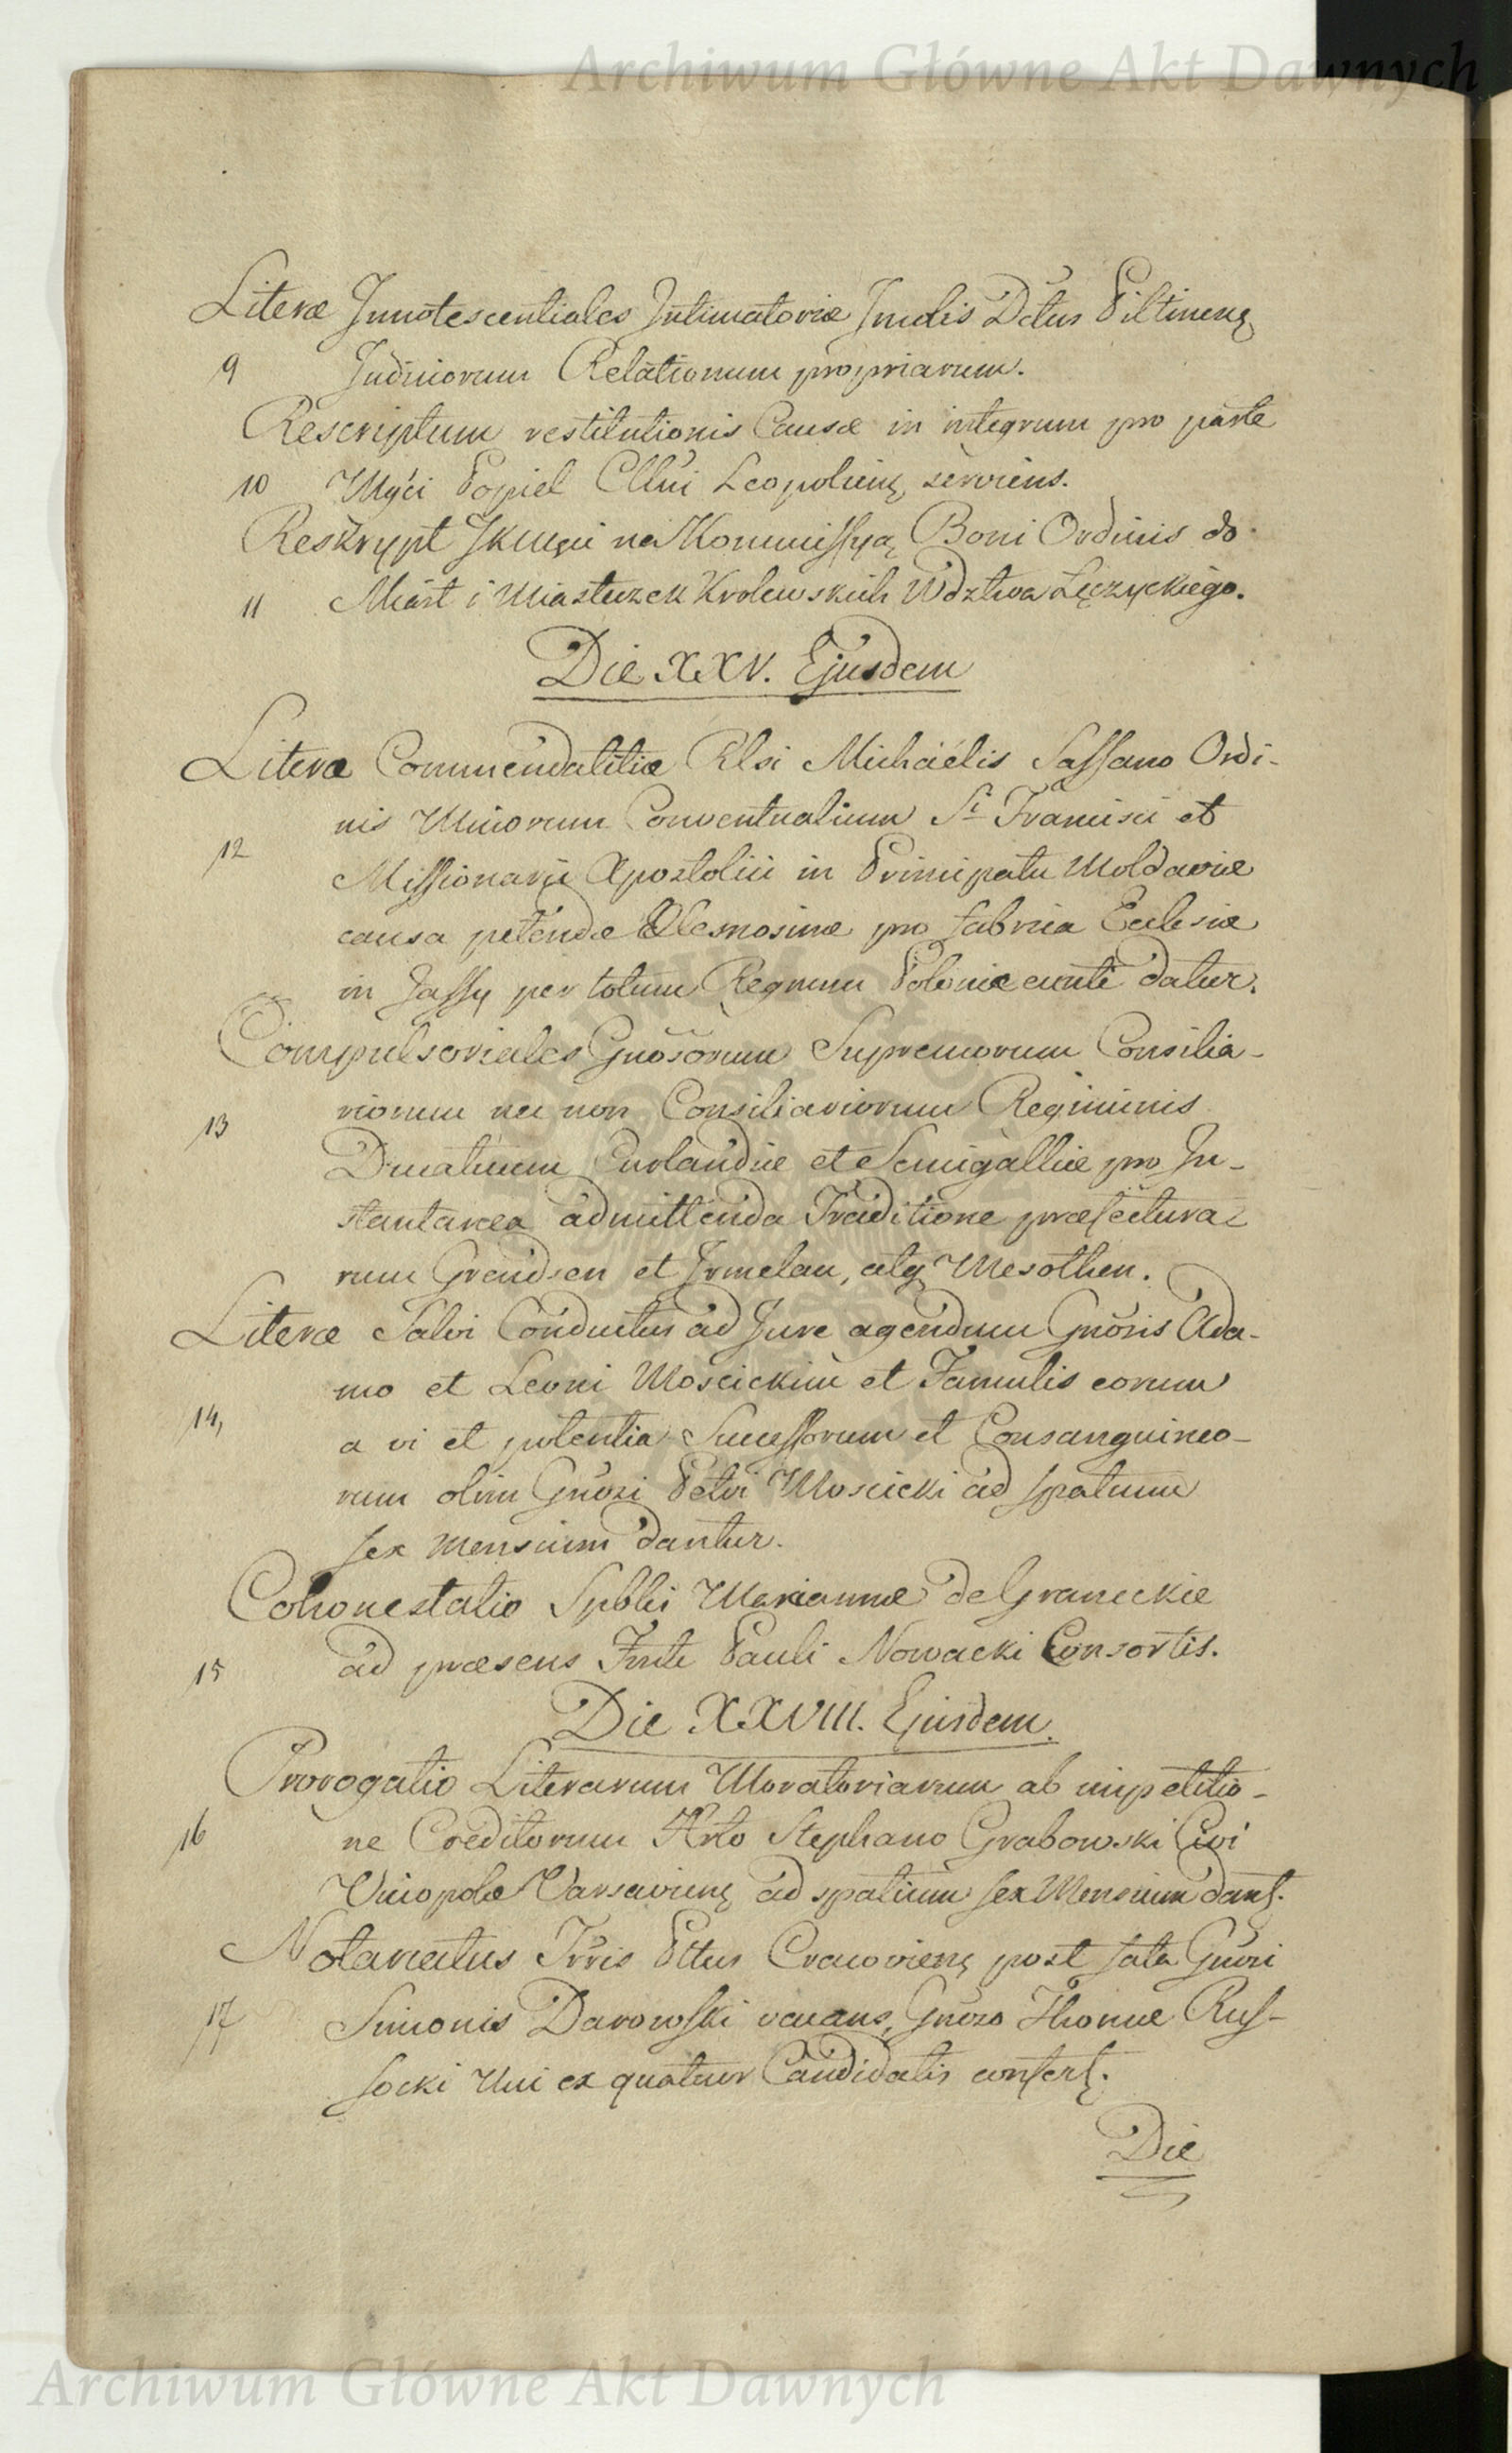 Archiwum Główne Akt Dawnych
Literæ Innotescentiales Intimatoriæ Incolis Dctus Piltineng
9 Judiciorum Relationum propriarum.
Rescriptum restitutionis Causæ in integrum pro parte
10 Popiel Leopolieng serviens.
Reskrypt JKMci na Kommissyą Boni Ordinis do
11 Miast i Miasteczek Krolewskich Wdztwa Łęczyckiego.
Die XXV. Ejusdem
Literæ Commendatitiæ Rlsi Michaelis Sassano Ordi-
nis Minorum Conventualium Sti Francisci et
12 Missionarii Apostolici in Principatu Moldaviæ
causa petendæ Elemosinæ pro fabrica Ecclesiæ
in Jassy per totum Regnum Poloniæ eunti datur.
Compulsoriales Gnosorum Supremorum Consilia-
13 riorum nec non Consiliariorum Regiminis
Ducatuum Curlandiæ et Semigalliæ pro In-
stantanea admittenda Traditione præfectura-
rum Grendsen et Irmelau, atq Mesothen.
Literæ Salvi Conductus ad Jure agendum Gnosis Ada-
mo et Leoni Moscickim et Famulis eorum
14, a vi et potentia Successorum et Consanguineo-
rum olim Gnosi Petri Moscicki ad spatium
sex mensium dantur.
Cohonestatio Spblis Mariannæ de Graneckie
15 ad præsens Pauli Nowacki Consortis.
Die XXVIII. Ejusdem.
Prorogatio Literarum Moratoriarum ab impetitio-
16 ne Creditorum Stephano Grabowski Civi
Viniopolæ Varsavieng ad spatium sex Mensium dant.
Notariatus Pttus Cracovieng post fata Gnosi
17 Simonis Darowski vacans, Gnoso Thomæ Rus-
socki Uni ex quatuor Candidatis confert.
Die
Archiwum Główne Akt Dawnych